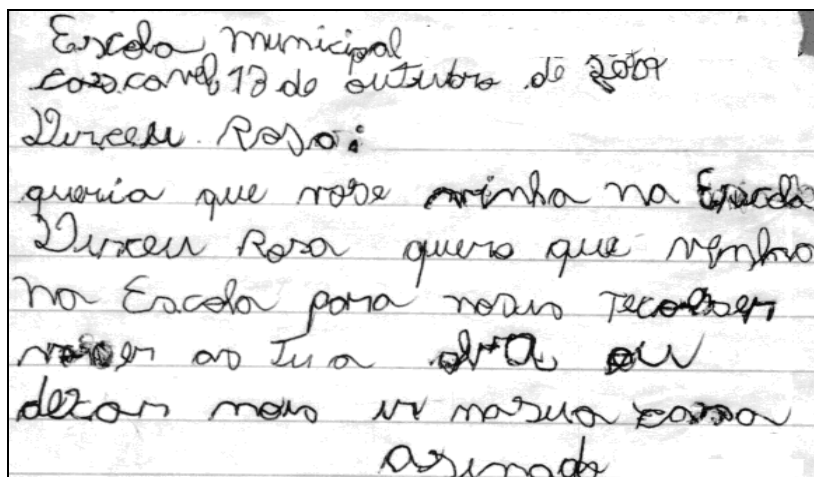 Escola municipal
cascavel 13 de outubro de 2009
Dirceu Rosa:
queria que vose minha na Escola
Dirceu Rosa quero que venha
na Escola para
ao tua ou
dezar nois ir na sua casa
asinado